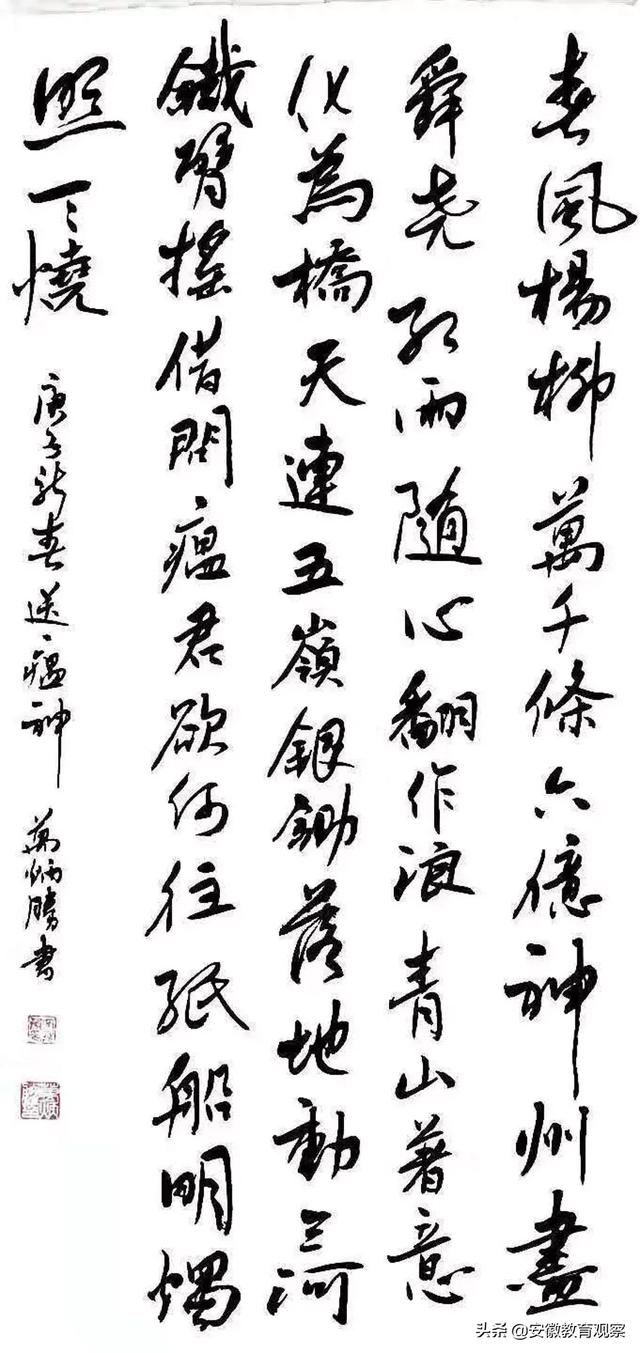 春風楊柳萬千條六億神州盡
舜尧紅雨隨心翻作浪青山著意
化為橋天連五嶺銀鋤落地動三河
鐵臂搖借問瘟君欲何往紙船明燭
照天燒
庚子新春送瘟神 萬炳勝書
头条 @安徽教育观察